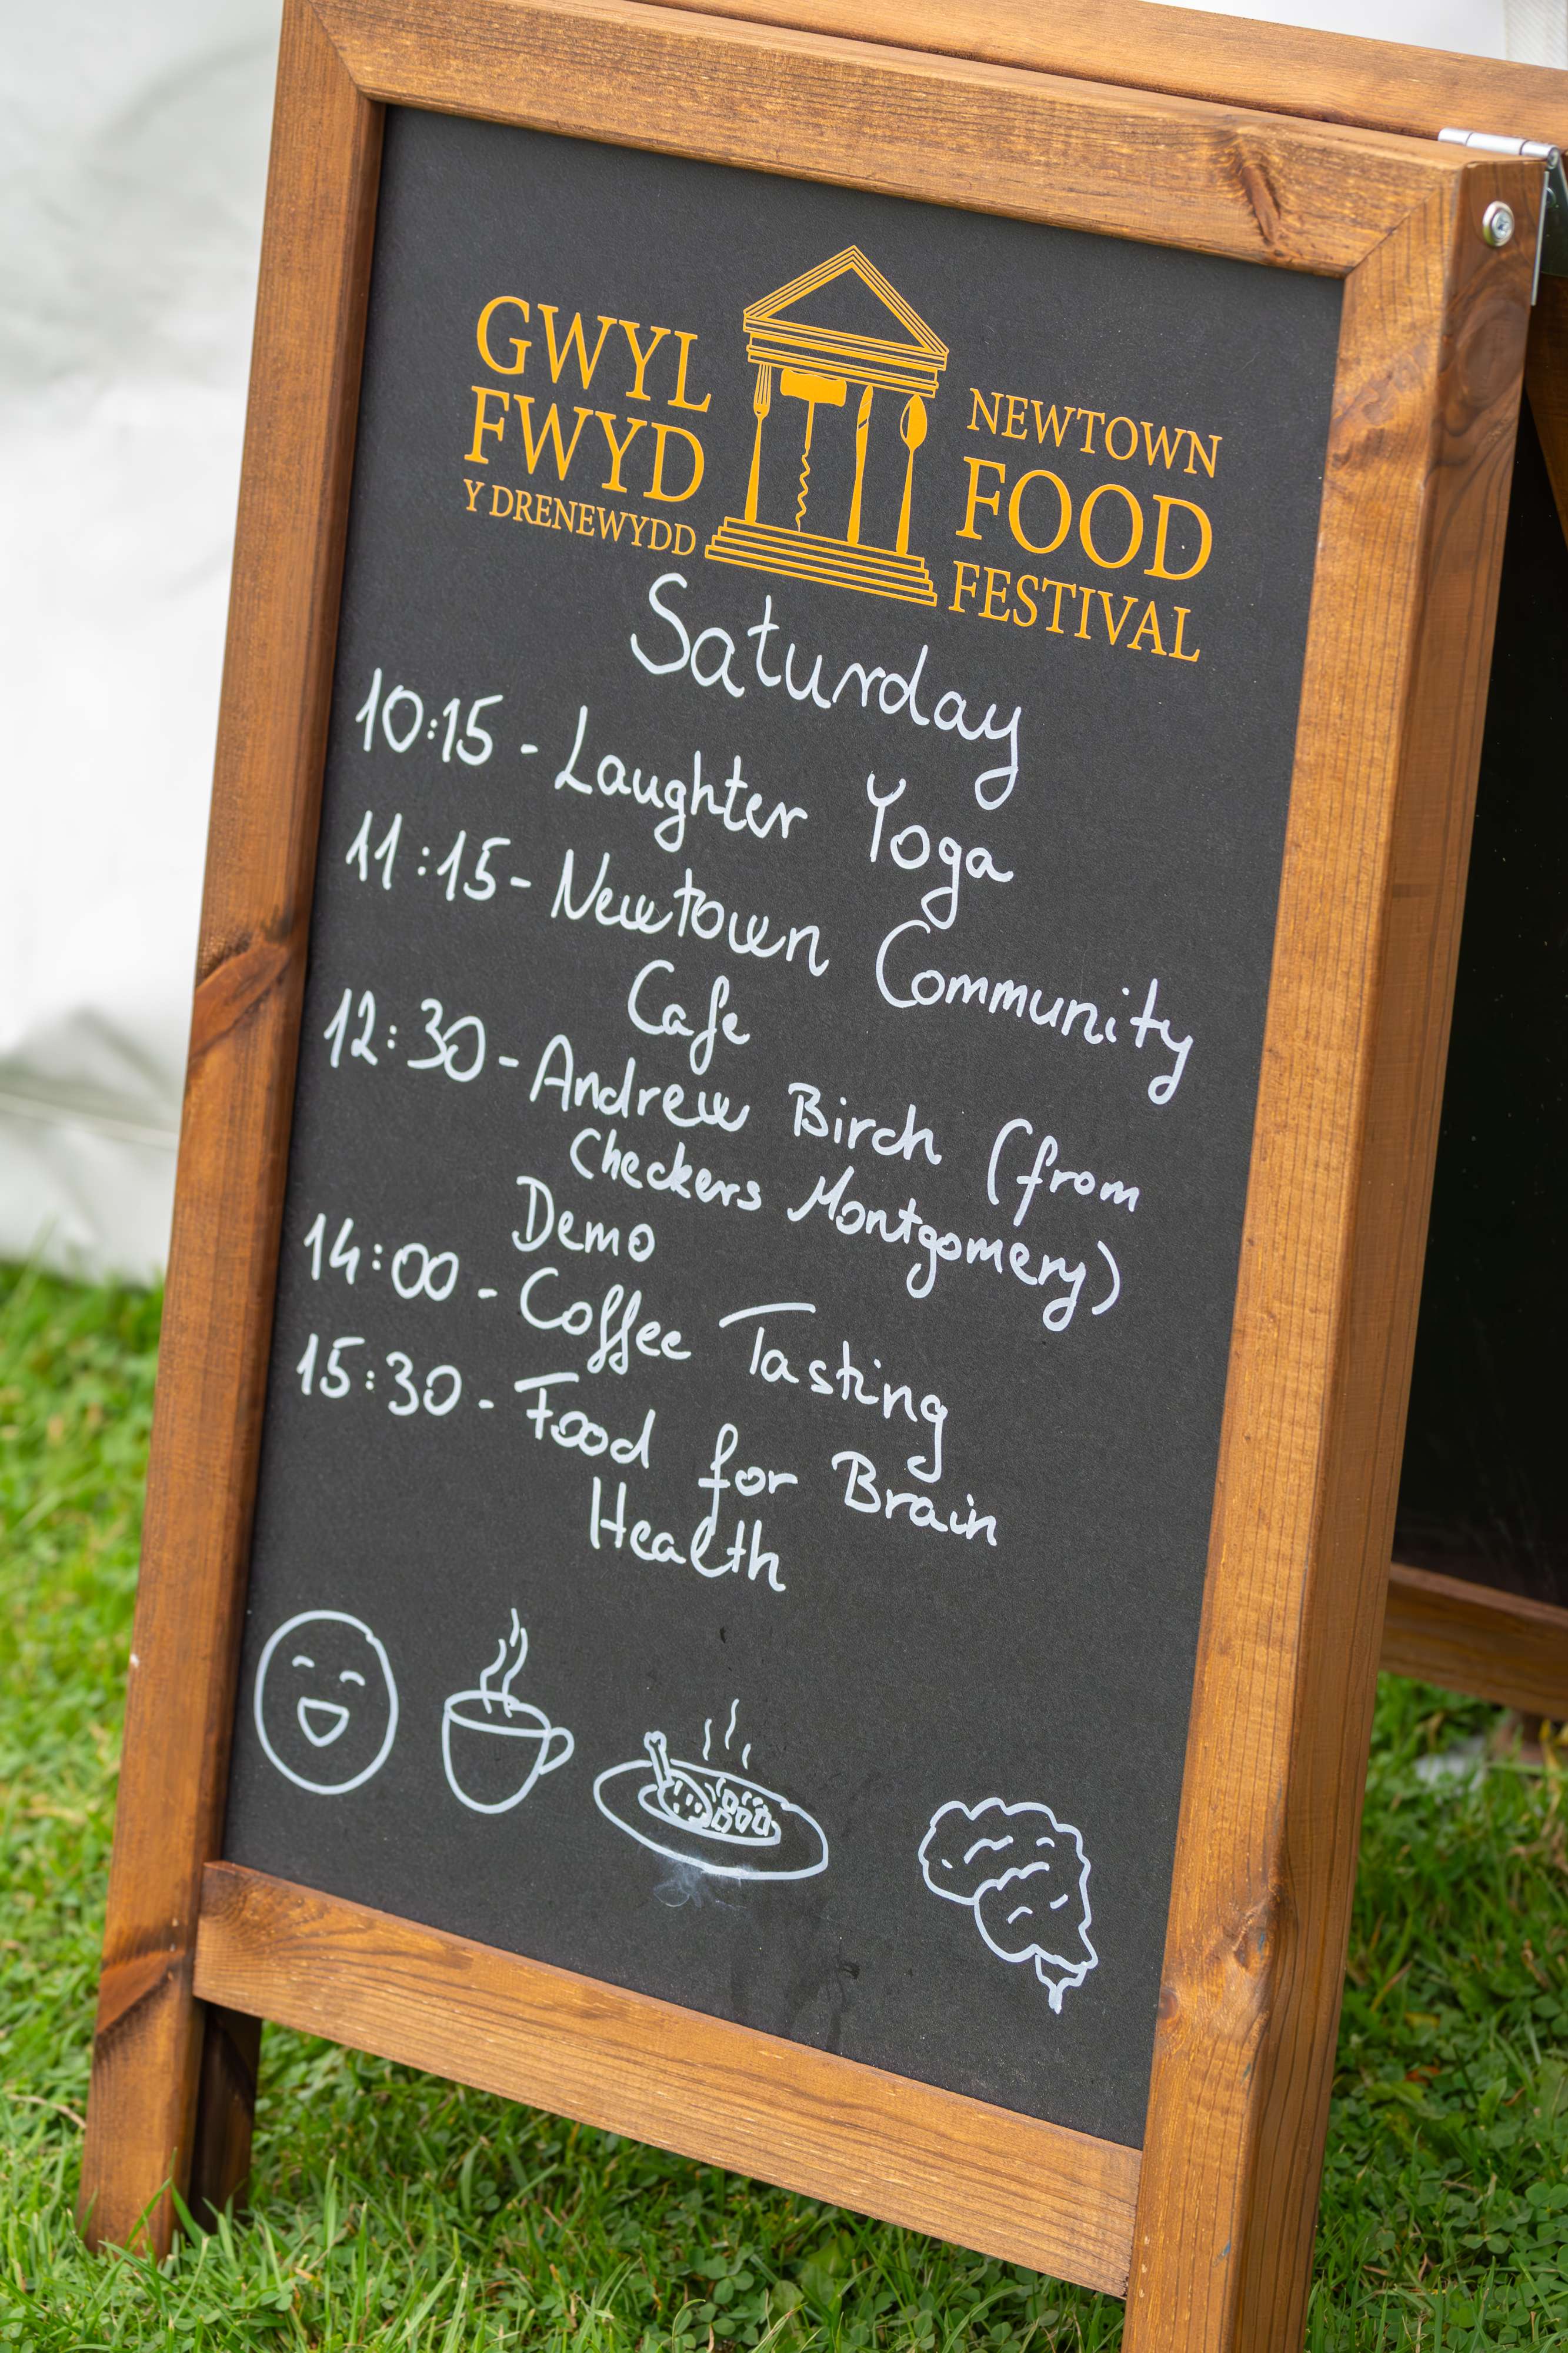 GWYL
FWYD
Y DRENEWYDD
NEWTOWN
FOOD
FESTIVAL
Saturday
10:15 - Laughter Yoga
11:15 - Newtown Community
Cafe
12:30 - Andrew Birch (from
Checkers Montgomery)
Demo
14:00 - Coffee Tasting
15:30 - Food for Brain
Health